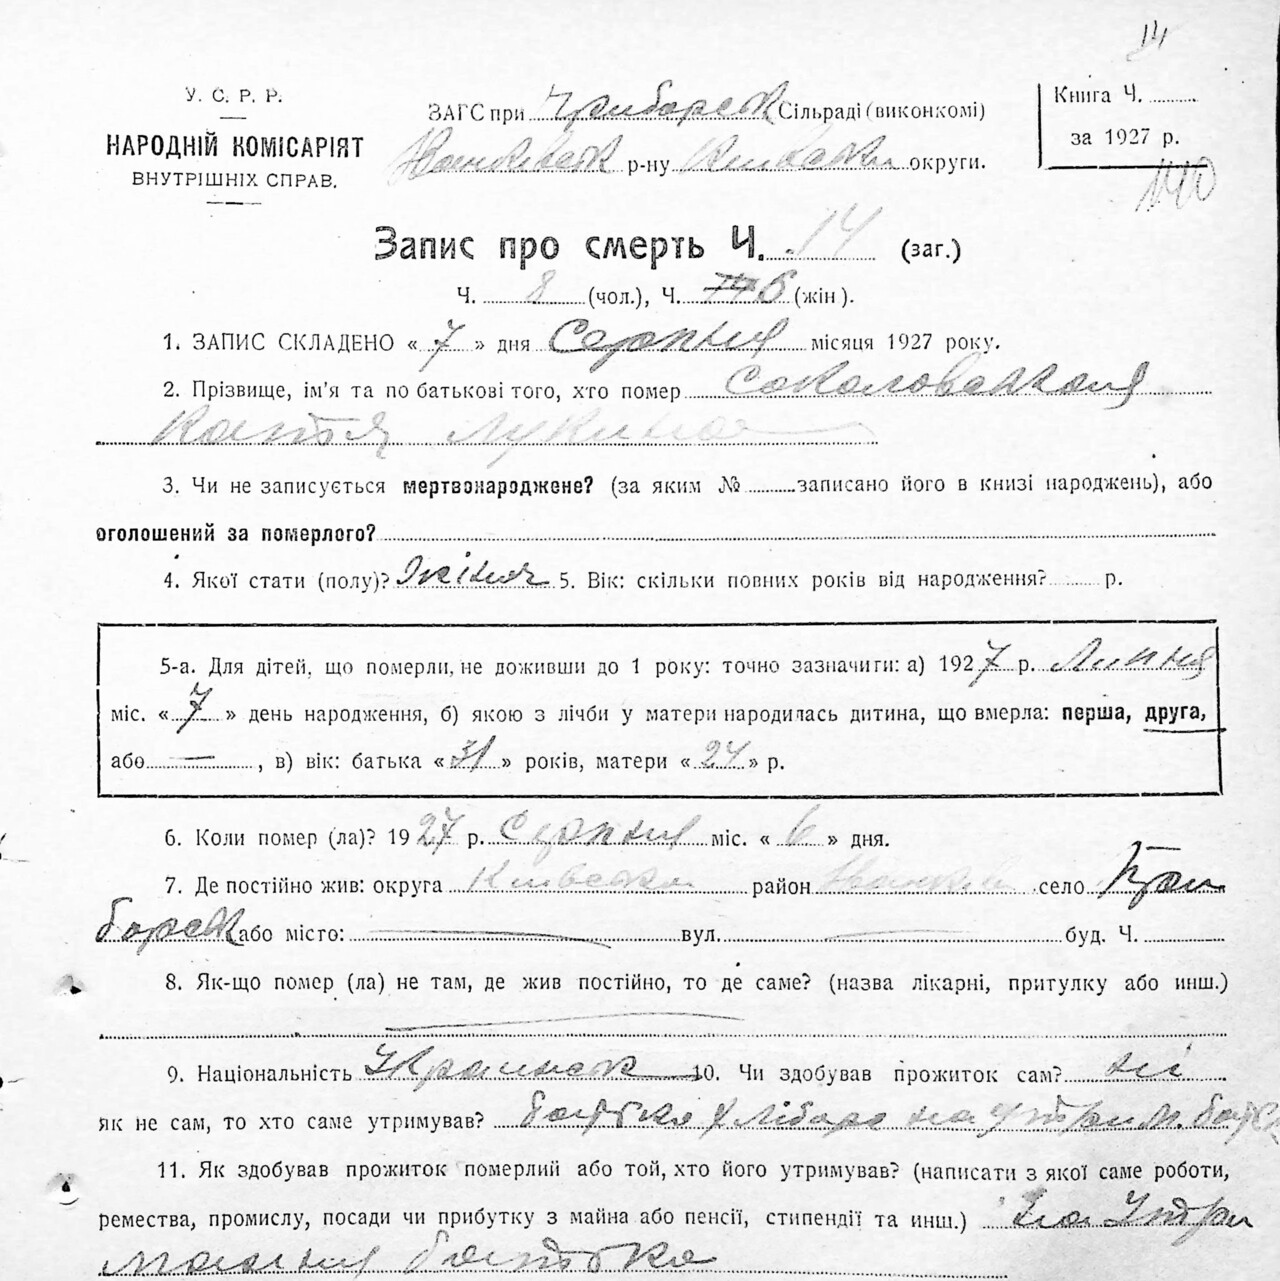 14
У. С. Р. Р.
НАРОДНІЙ КОМІСАРІЯТ
ВНУТРІШНІХ СПРАВ.
ЗАГС при Приборськ Сільраді (виконкомі)
Іванківськ р-ну Київськи округи.
Книга Ч.
за 1927 р.
Запис про смерть Ч. 14 (заг.)
Ч. 8 (чол.), Ч. 6 (жін).
1. ЗАПИС СКЛАДЕНО « 7 » дня Серпня місяця 1927 року.
2. Прізвище, ім'я та по батькові того, хто помер
Катя Лукина
3. Чи не записується мертвонароджене? (за яким № записано його в книзі народжень), або
оголошений за померлого?
4. Якої стати (полу)? Жіноч 5. Вік: скільки повних років від народження? р.
5-а. Для дітей, що померли, не доживши до 1 року: точно зазначити: а) 1927 р. Липня
міс. « 7 » день народження, б) якою з лічби у матери народилась дитина, що вмерла: перша, друга,
або — , в) вік: батька « 31 » років, матери « 24 » р.
6. Коли помер (ла)? 1927 р. Серпня міс. « 6 » дня.
7. Де постійно жив: округа Київська район Іванків село При
борськ або місто: вул. буд. Ч.
8. Як-що помер (ла) не там, де жив постійно, то де саме? (назва лікарні, притулку або инш.)
9. Національність Украинськ 10. Чи здобував прожиток сам? ні
як не сам, то хто саме утримував? батько хлібороб на утрим. батьк
11. Як здобував прожиток померлий або той, хто його утримував? (написати з якої саме роботи,
ремества, промислу, посади чи прибутку з майна або пенсії, стипендії та инш.) На Утри
мання батька